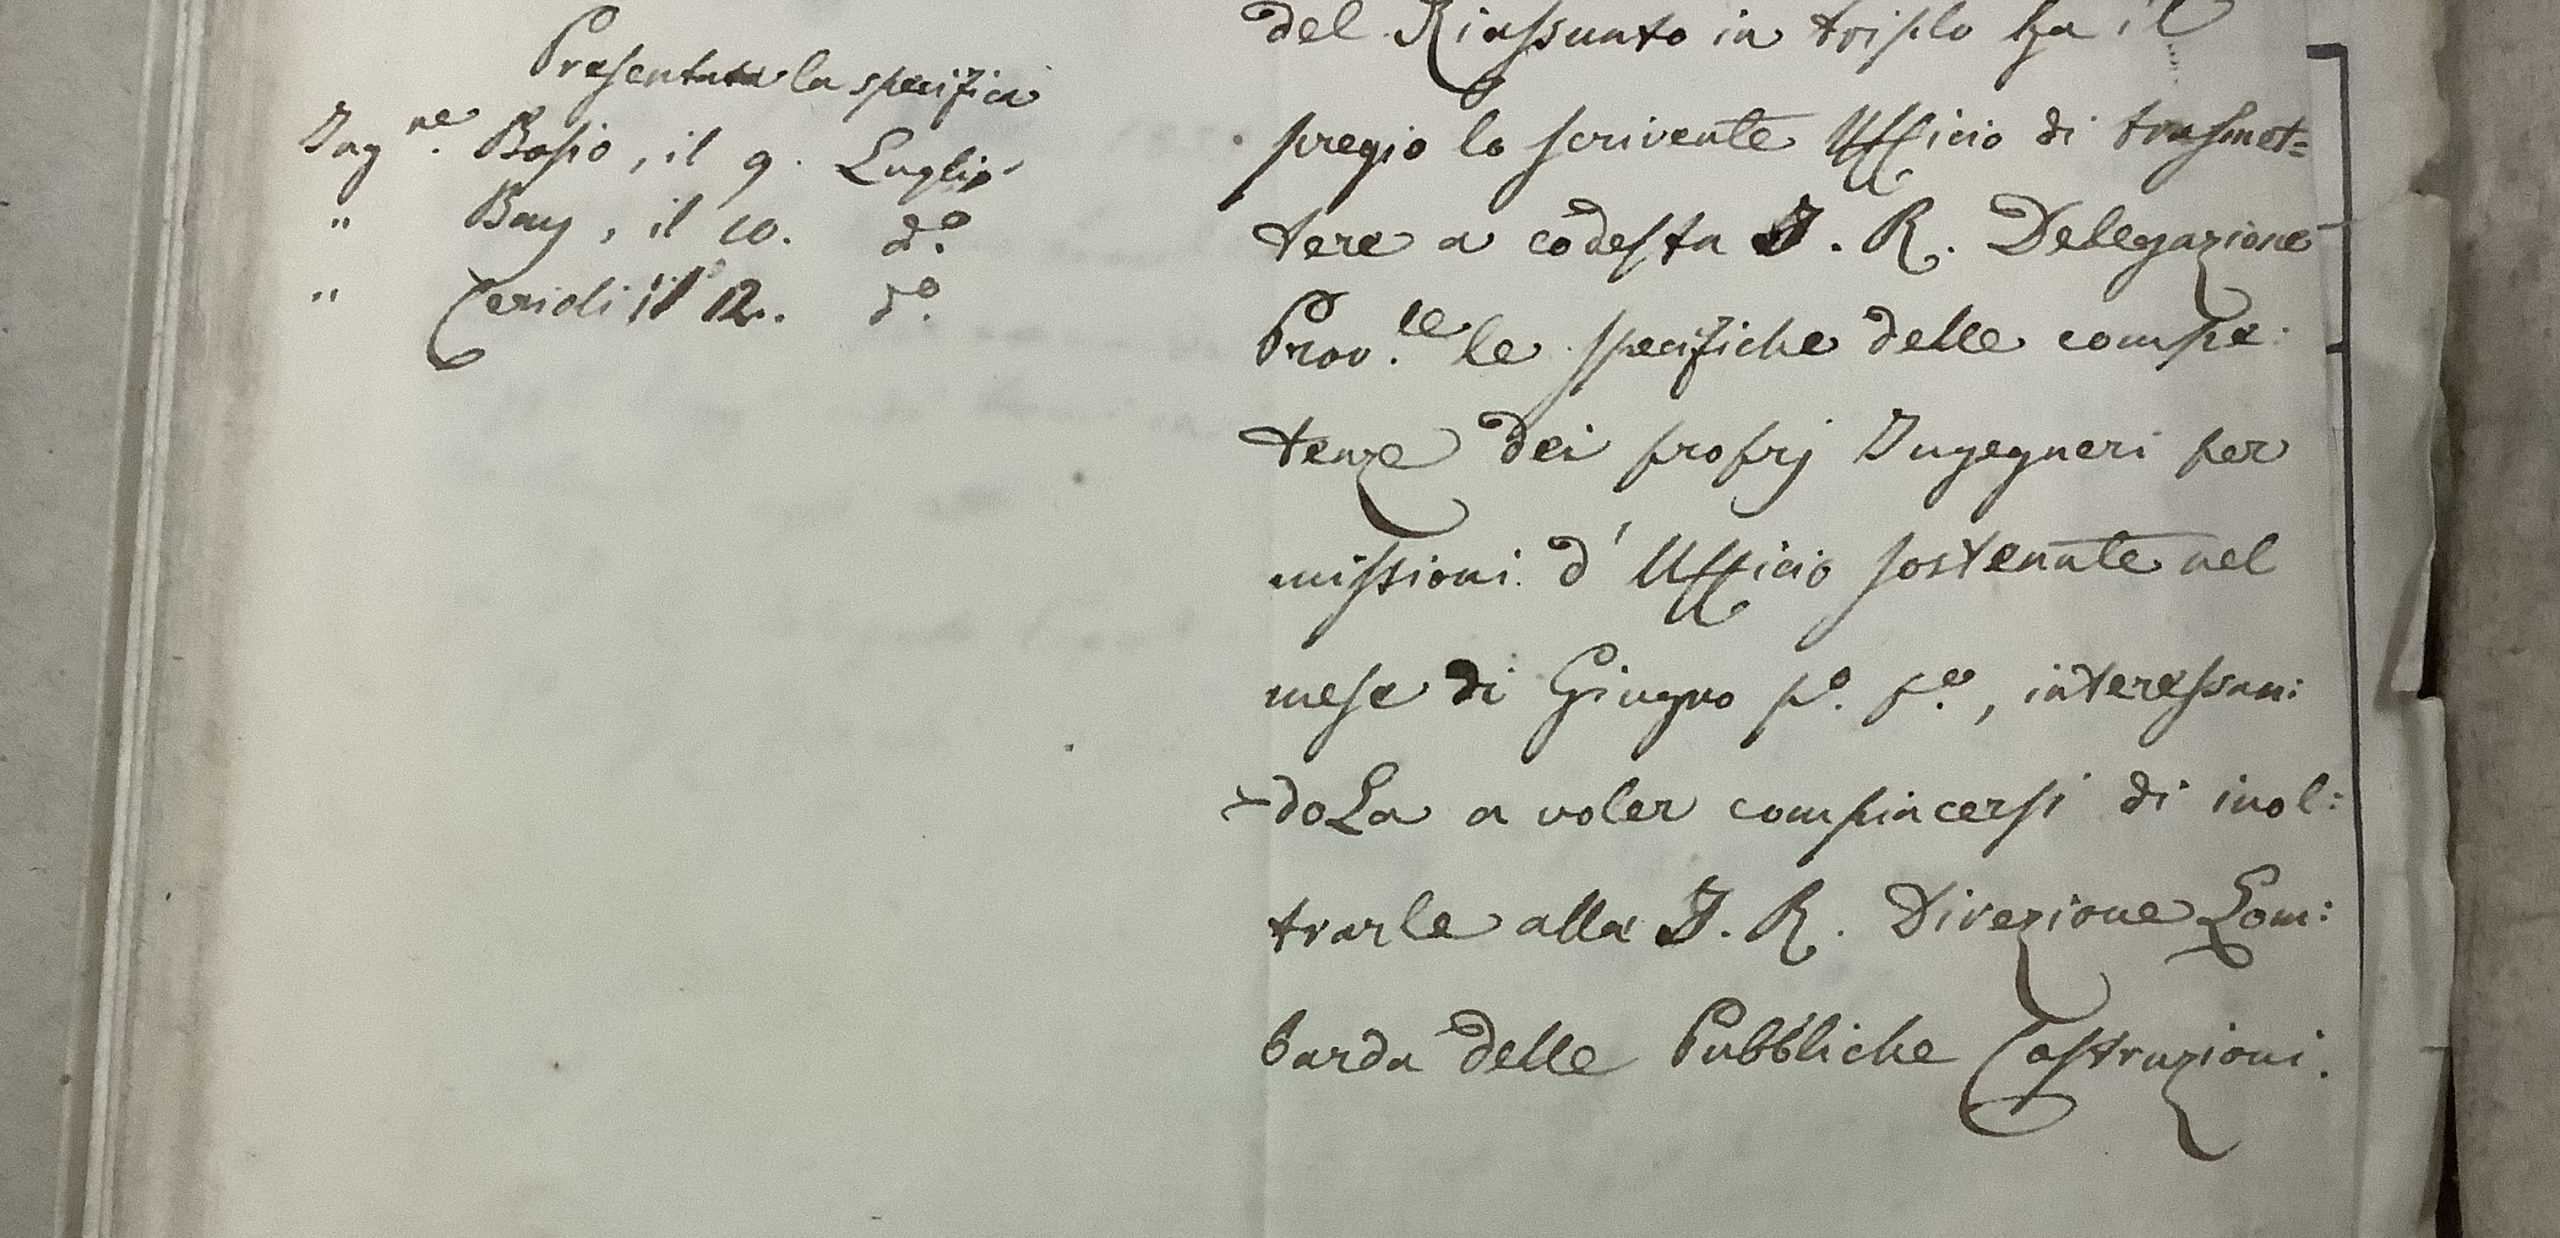 Presentata la specifica
Ing.ne Bosio, il 9. Luglio
" Bay, il 10. d.o
" Ceridi il 12. d.o
del Riassunto in triplo ha il
pregio lo scrivente Ufficio di trasmet=
tere a codesta I. R. Delegazione
Prov.le le specifiche delle compe:
tenze dei proprj Ingegneri per
missioni d'Ufficio sostenute nel
mese di Giugno p.o p.o, interessan:
=doLa a voler compiacersi di inol:
trarle alla I. R. Direzione Lom:
barda delle Pubbliche Costruzioni.